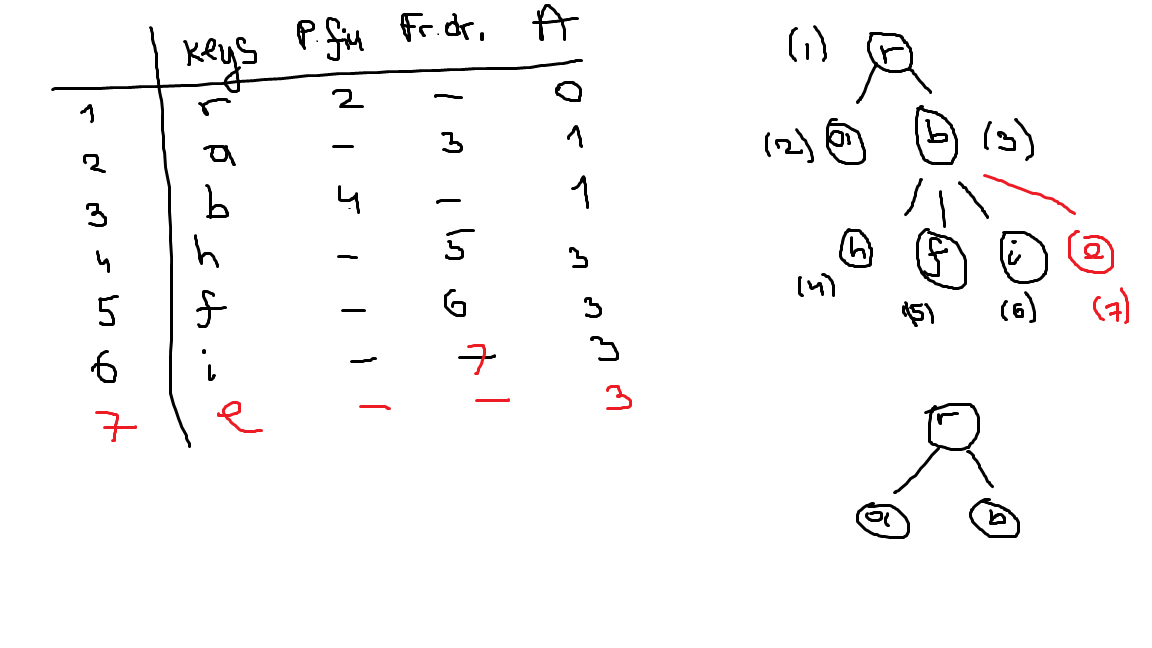 keys P.fiu Fr.dr. A
1 r 2 - 0
2 a - 3 1
3 b 4 - 1
4 h - 5 3
5 f - 6 3
6 i - 7 3
7 e - - 3
(1) r
(2) a b (3)
h f i e
(4) (5) (6) (7)
r
a b